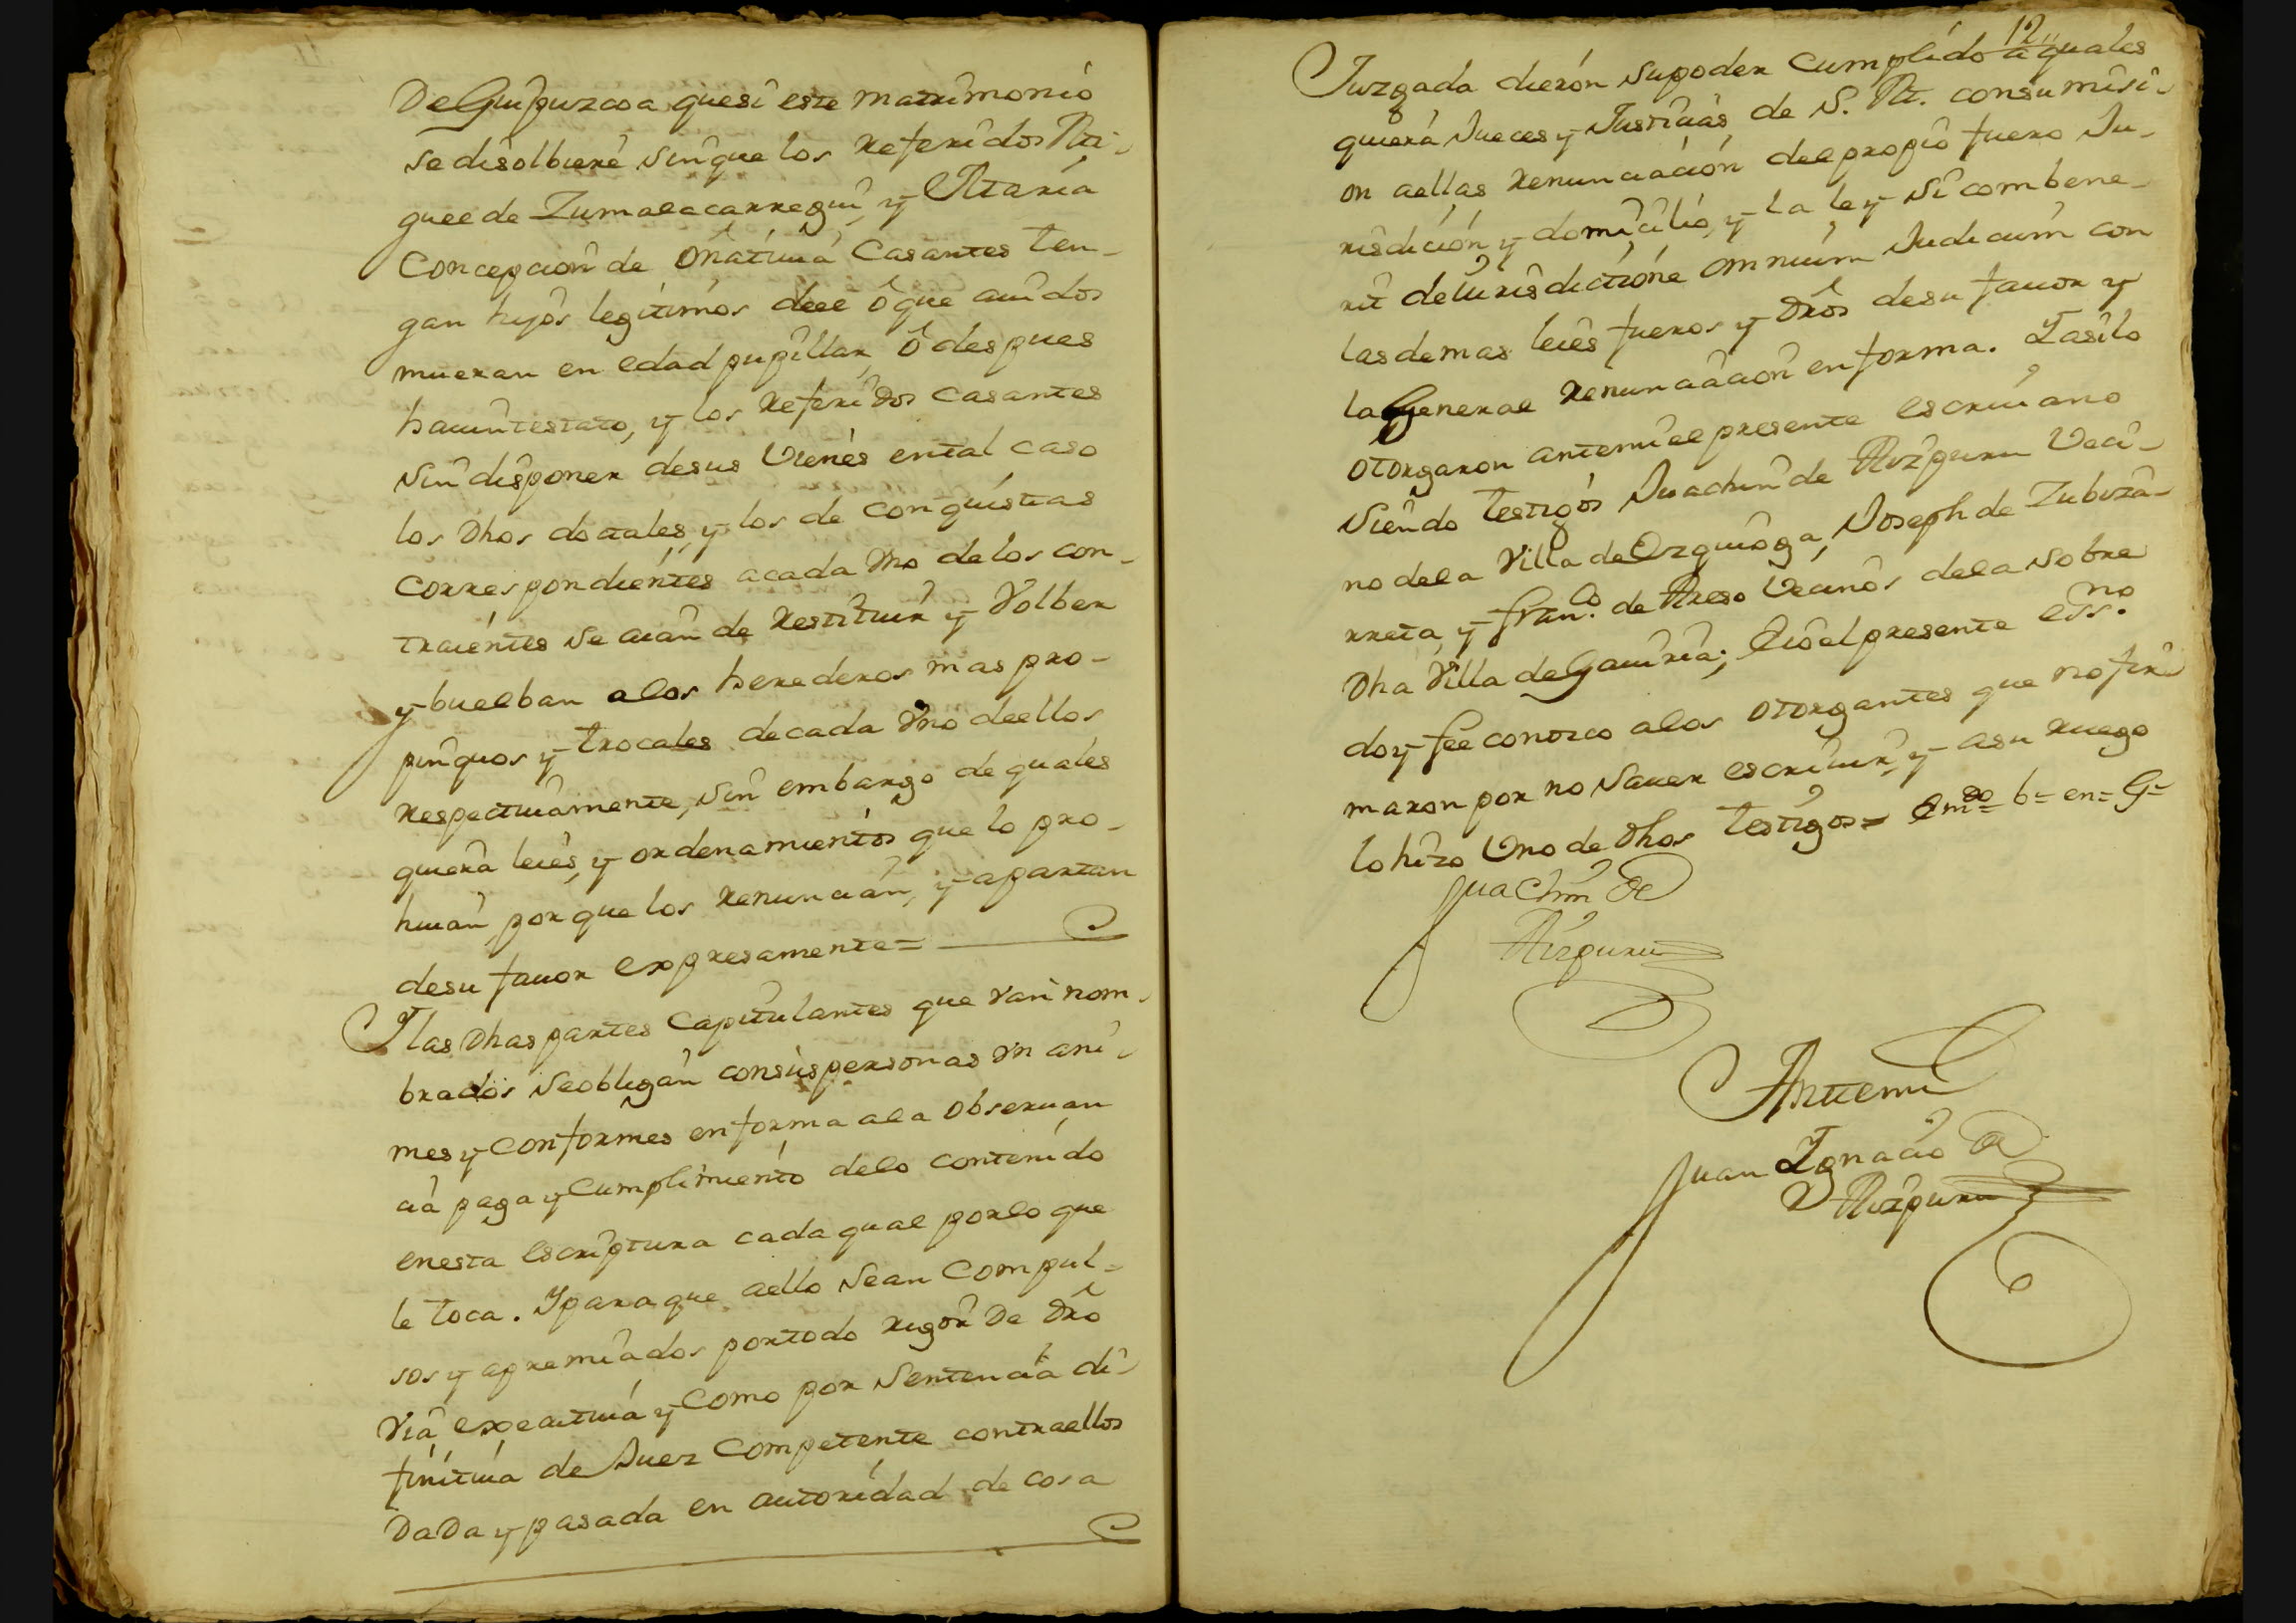 De Guipuzcoa que si este matrimonio
se disolbiere sin que los referidos Mi-
guel de Zumalacarregui, y Maria
Concepcion de Oñativia Casantes ten-
gan hijos legitimos de el ô que auidos
mueran en edad pupillar, ô despues
hauintestato, y los referidos casantes
sin disponer de sus Vienes en tal caso
los Dhos dotales, y los de conquistas
correspondientes a cada Vno de los con-
traientes se aian de restituir y Volber
y buelban a los herederos mas pro-
pinquos y trocales de cada Vno de ellos
respectiuamente, sin embargo de quales
quiera leies, y ordenamientos que lo pro-
hiuan, porque los renuncian, y apartan
de su fauor expresamente =
Y las Dhas partes Capitulantes que van nom-
brados se obligan con sus personas Vnani-
mes y Conformes en forma a la obseruan
cia paga y Cumplimiento de lo contenido
en esta escriptura cada qual por lo que
le toca. Y para que a ello sean Compul-
sos y apremiados por todo rigor De Dro
Via executiua y Como por sentencia di-
finitiua de Juez Competente contra ellos
DaDa y pasada en autoridad de cosa
12
Juzgada dieron su poder cumplido a quales
quiera Jueces y Justicias de S. M. con sumisi-
on a ellas renunciacion del propio fuero Ju-
risdicion y domicilio, y la ley si combene-
rit de iurisdictione omnium Judicum con
las demas leies fueros y Dros de su fauor y
la General renunciacion en forma. Y asi lo
otorgaron ante mi el presente escriuano
siendo testigos Juachin de Aizpuru Veci-
no de la Villa de Ezquioga, Joseph de Zubiza-
rreta, y Fran.co de Areso Vecinos de la sobre
Dha Villa de Gauiria; E io el presente ess.no
doy fee conozco a los otorgantes que no fir-
maron por no sauer escriuir, y a su ruego
lo hizo Vno de Dhos testigos = Em.do = b = en = G =
Juachin de
Aizpuru
Ante mi
Juan Ygnacio de
Aizpuru